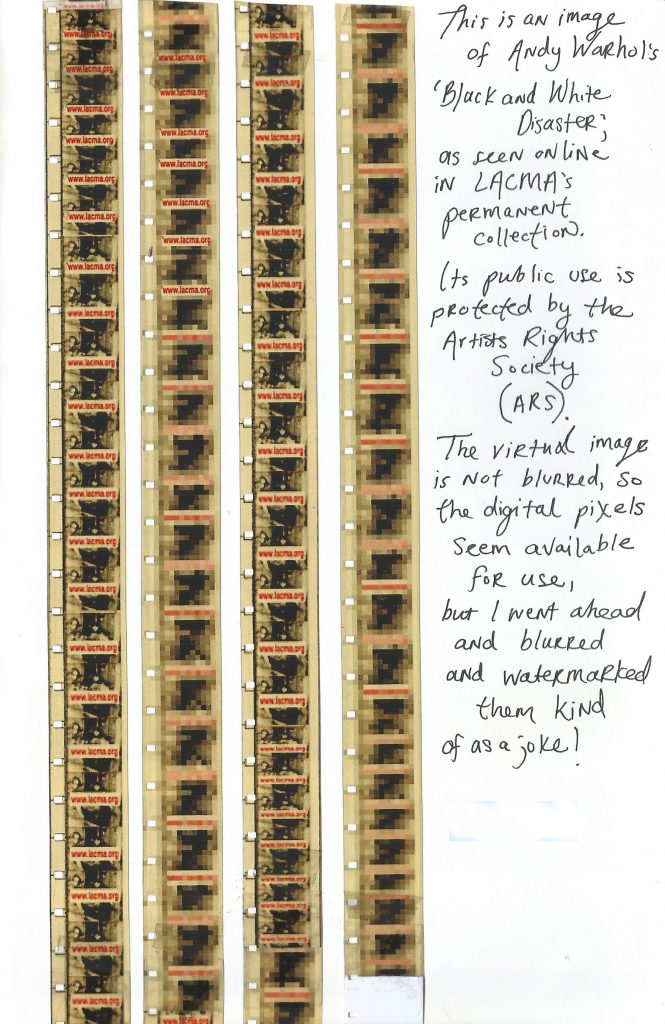 www.lacma.org
www.lacma.org
www.lacma.org
www.lacma.org
www.lacma.org
www.lacma.org
www.lacma.org
www.lacma.org
www.lacma.org
www.lacma.org
www.lacma.org
www.lacma.org
www.lacma.org
www.lacma.org
www.lacma.org
www.lacma.org
www.lacma.org
www.lacma.org
www.lacma.org
www.lacma.org
www.lacma.org
www.lacma.org
www.lacma.org
www.lacma.org
www.lacma.org
www.lacma.org
www.lacma.org
www.lacma.org
www.lacma.org
www.lacma.org
www.lacma.org
www.lacma.org
www.lacma.org
www.lacma.org
www.lacma.org
www.lacma.org
www.lacma.org
www.lacma.org
www.lacma.org
www.lacma.org
www.lacma.org
www.lacma.org
www.lacma.org
www.lacma.org
www.lacma.org
www.lacma.org
www.lacma.org
www.lacma.org
www.lacma.org
www.lacma.org
www.lacma.org
www.lacma.org
www.lacma.org
This is an image
of Andy Warhol's
'Black and White
Disaster,'
as seen online
in LACMA's
permanent
collection.
Its public use is
protected by the
Artists Rights
Society
(ARS).
The virtual image
is not blurred, so
the digital pixels
seem available
for use,
but I went ahead
and blurred
and watermarked
them kind
of as a joke!